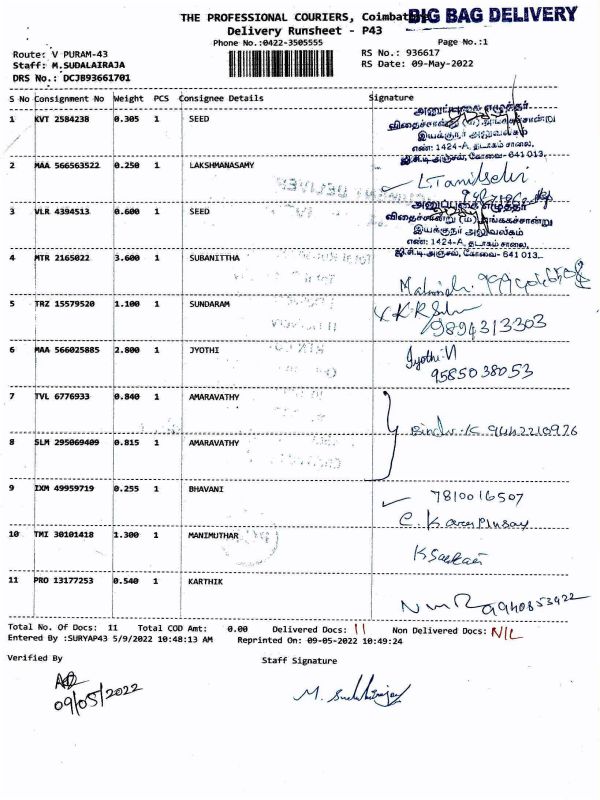 THE PROFESSIONAL COURIERS, Coimbatore
BIG BAG DELIVERY
Delivery Runsheet - P43
Phone No.:0422-3505555
Page No.:1
Route: V PURAM-43
RS No.: 936617
Staff: M.SUDALAIRAJA
RS Date: 09-May-2022
DRS No.: DCJB93661701
S No Consignment No Weight PCS Consignee Details Signature
1 KVT 2584238 0.305 1 SEED
அனுப்புகை எழுத்தர்
விதைச்சான்று (ம) அங்ககச்சான்று
இயக்குநர் அலுவலகம்
எண்: 1424-A, தடாகம் சாலை,
ஜி.சி.டி அஞ்சல், கோவை- 641 013.
2 MAA 566563522 0.250 1 LAKSHMANASAMY
L.Tamilselvi
3 VLR 4394513 0.600 1 SEED
அனுப்புகை எழுத்தர்
விதைச்சான்று (ம) அங்ககச்சான்று
இயக்குநர் அலுவலகம்
எண்: 1424-A, தடாகம் சாலை,
ஜி.சி.டி அஞ்சல், கோவை- 641 013.
4 MTR 2165022 3.600 1 SUBANITTHA
5 TRZ 15579520 1.100 1 SUNDARAM
9894313303
6 MAA 566025885 2.800 1 JYOTHI
Jyothi.N
9585038053
7 TVL 6776933 0.840 1 AMARAVATHY
Bindu.K 9442210926
8 SLM 295069409 0.815 1 AMARAVATHY
9 IXM 49959719 0.255 1 BHAVANI
7810016507
10 TMI 30101418 1.300 1 MANIMUTHAR
11 PRO 13177253 0.540 1 KARTHIK
9940853922
Total No. Of Docs: 11 Total COD Amt: 0.00 Delivered Docs: 11 Non Delivered Docs: NIL
Entered By :SURYAP43 5/9/2022 10:48:13 AM Reprinted On: 09-05-2022 10:49:24
Verified By Staff Signature
09/05/2022